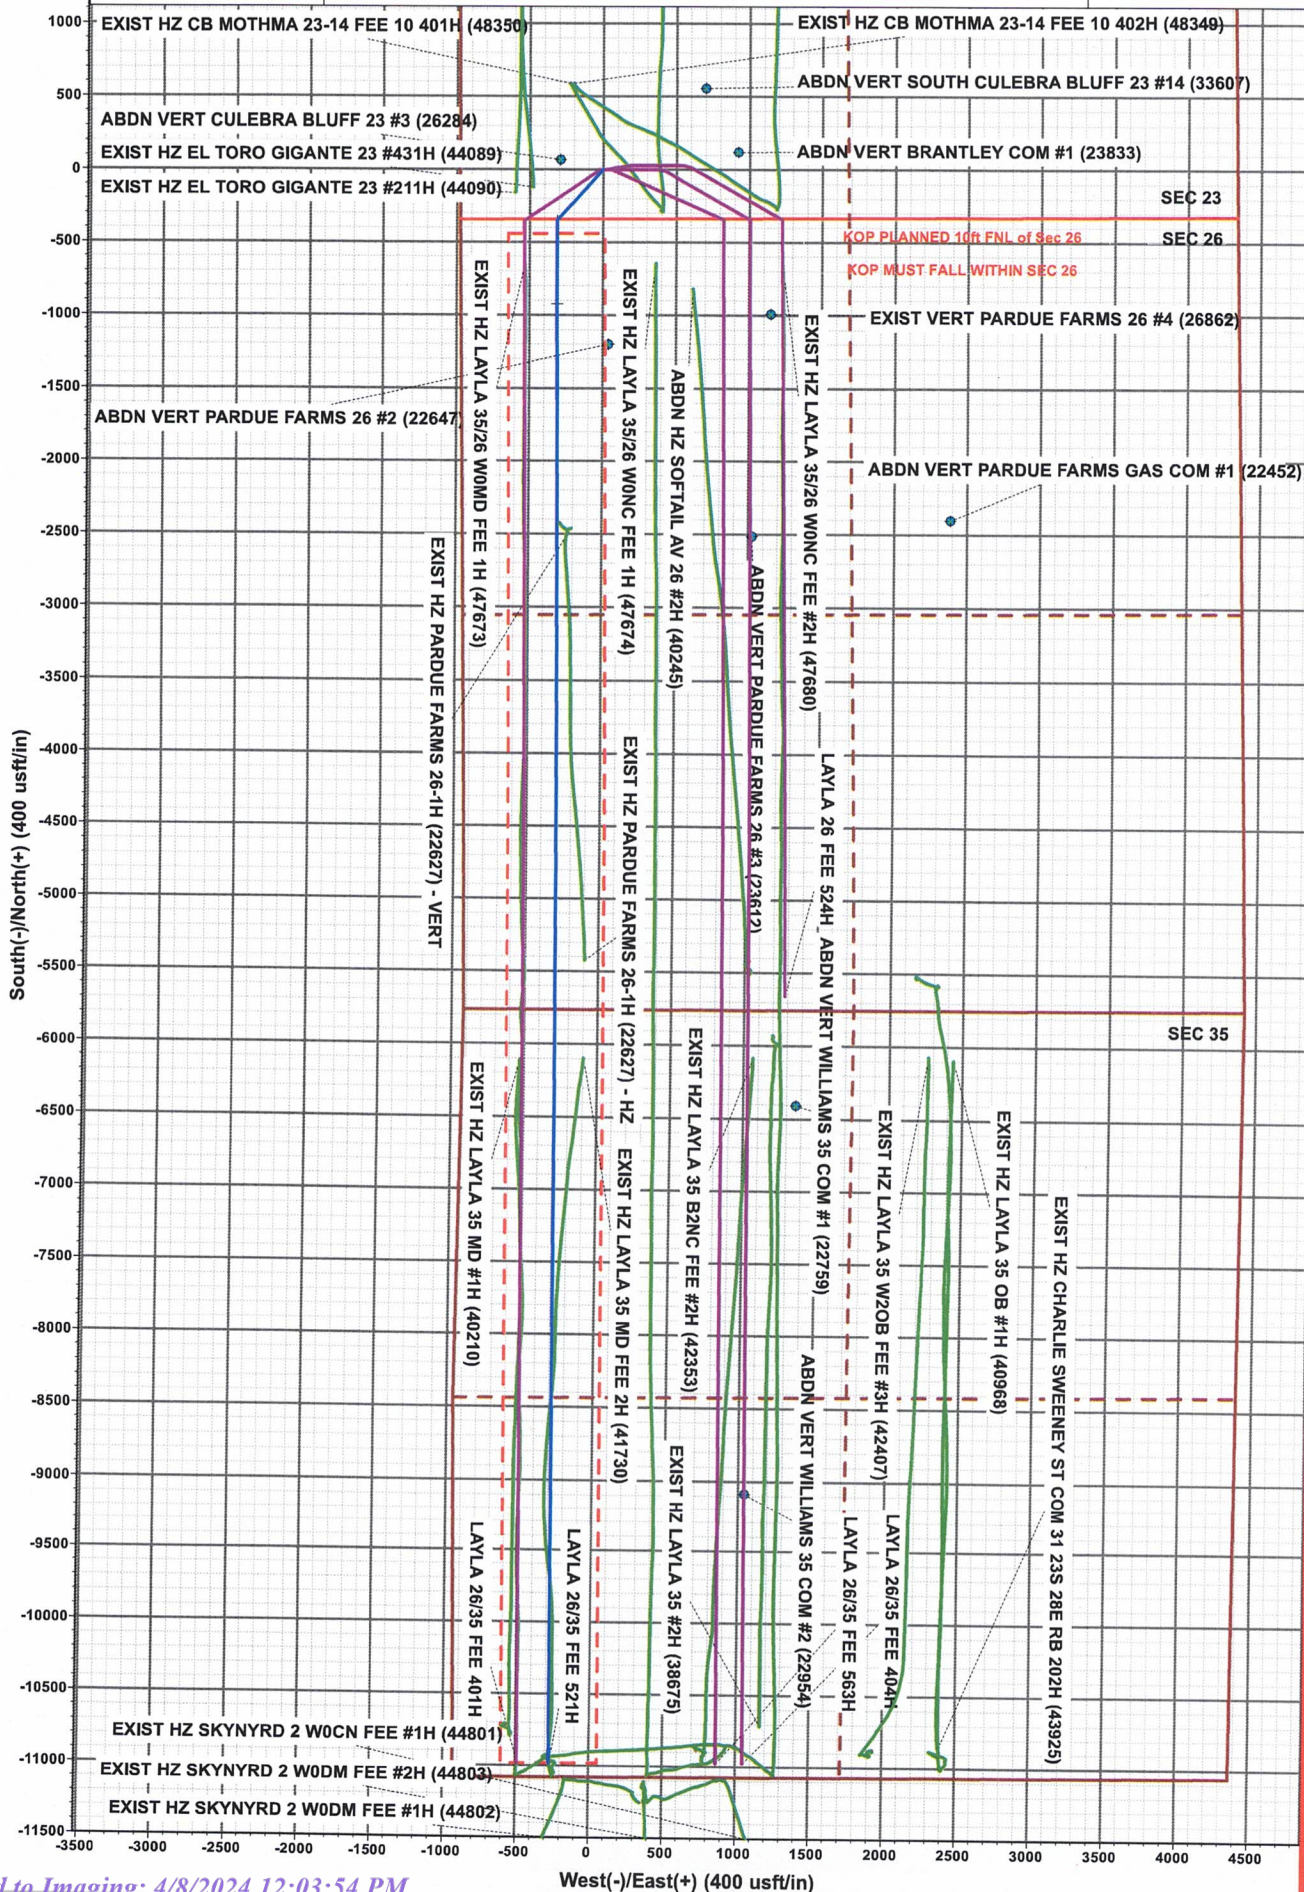 EXIST HZ CB MOTHMA 23-14 FEE 10 401H (48350)
EXIST HZ CB MOTHMA 23-14 FEE 10 402H (48349)
ABDN VERT SOUTH CULEBRA BLUFF 23 #14 (33607)
ABDN VERT CULEBRA BLUFF 23 #3 (26284)
EXIST HZ EL TORO GIGANTE 23 #431H (44089)
ABDN VERT BRANTLEY COM #1 (23833)
EXIST HZ EL TORO GIGANTE 23 #211H (44090)
SEC 23
KOP PLANNED 10ft FNL of Sec 26
SEC 26
KOP MUST FALL WITHIN SEC 26
EXIST VERT PARDUE FARMS 26 #4 (26862)
ABDN VERT PARDUE FARMS 26 #2 (22647)
ABDN VERT PARDUE FARMS GAS COM #1 (22452)
EXIST HZ LAYLA 35/26 W0MD FEE 1H (47673)
EXIST HZ LAYLA 35/26 W0NC FEE 1H (47674)
ABDN HZ SOFTAIL AV 26 #2H (40245)
EXIST HZ LAYLA 35/26 W0NC FEE #2H (47680)
EXIST HZ PARDUE FARMS 26-1H (22627) - VERT
ABDN VERT PARDUE FARMS 26 #3 (23612)
EXIST HZ PARDUE FARMS 26-1H (22627) - HZ
LAYLA 26 FEE 524H
ABDN VERT WILLIAMS 35 COM #1 (22759)
SEC 35
EXIST HZ LAYLA 35 MD #1H (40210)
EXIST HZ LAYLA 35 MD FEE 2H (41730)
EXIST HZ LAYLA 35 B2NC FEE #2H (42353)
EXIST HZ LAYLA 35 W2OB FEE #3H (42407)
EXIST HZ LAYLA 35 OB #1H (40968)
EXIST HZ CHARLIE SWEENEY ST COM 31 23S 28E RB 202H (43925)
ABDN VERT WILLIAMS 35 COM #2 (22954)
EXIST HZ LAYLA 35 #2H (38675)
LAYLA 26/35 FEE 401H
LAYLA 26/35 FEE 521H
LAYLA 26/35 FEE 563H
LAYLA 26/35 FEE 404H
EXIST HZ SKYNYRD 2 W0CN FEE #1H (44801)
EXIST HZ SKYNYRD 2 W0DM FEE #2H (44803)
EXIST HZ SKYNYRD 2 W0DM FEE #1H (44802)
South(-)/North(+) (400 usft/in)
1000
500
0
-500
-1000
-1500
-2000
-2500
-3000
-3500
-4000
-4500
-5000
-5500
-6000
-6500
-7000
-7500
-8000
-8500
-9000
-9500
-10000
-10500
-11000
-11500
-3500 -3000 -2500 -2000 -1500 -1000 -500 0 500 1000 1500 2000 2500 3000 3500 4000 4500
West(-)/East(+) (400 usft/in)
to Imaging: 4/8/2024 12:03:54 PM